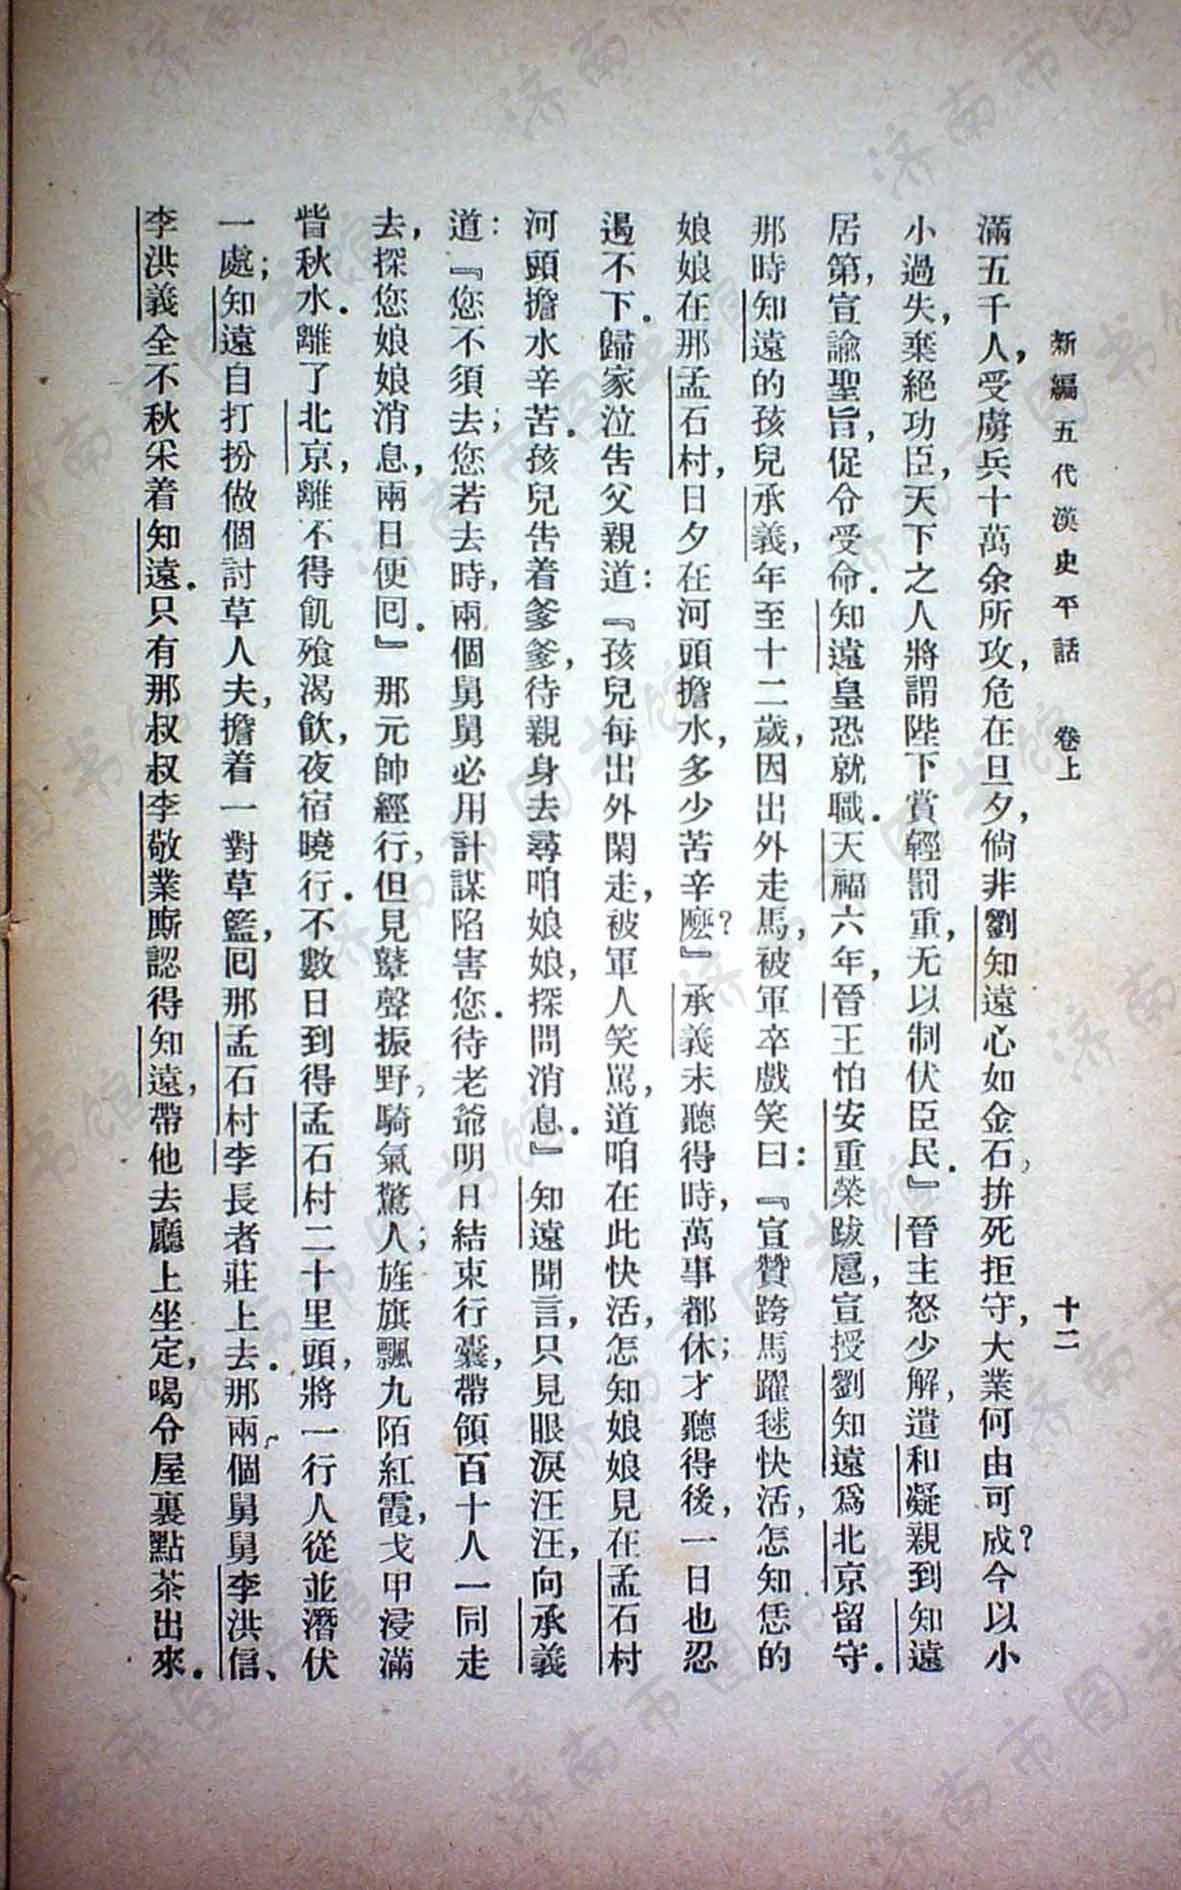 新編五代漢史平話　卷上　十二
滿五千人，受虜兵十萬余所攻，危在旦夕，倘非劉知遠心如金石，拚死拒守，大業何由可成？今以小
小過失，棄絕功臣，天下之人將謂陛下賞輕罰重，无以制伏臣民．』晉主怒少解，遣和凝親到知遠
居第，宣諭聖旨，促令受命．知遠皇恐就職．天福六年，晉王怕安重榮跋扈，宣授劉知遠爲北京留守．
那時知遠的孩兒承義，年至十二歲，因出外走馬，被軍卒戲笑曰：『宣贊跨馬躍毬快活，怎知恁的
娘娘在那孟石村，日夕在河頭擔水，多少苦辛麽？』承義未聽得時，萬事都休；才聽得後，一日也忍
遏不下．歸家泣吿父親道：『孩兒每出外閑走，被軍人笑罵，道咱在此快活，怎知娘娘見在孟石村
河頭擔水辛苦．孩兒吿着爹爹，待親身去尋咱娘娘，探問消息．』知遠聞言，只見眼淚汪汪，向承義
道：『您不須去；您若去時，兩個舅舅必用計謀陷害您．待老爺明日結束行囊，帶領百十人一同走
去，探您娘娘消息，兩日便囘．』那元帥經行，但見鼙聲振野，騎氣驚人；旌旗飄九陌紅霞，戈甲浸滿
眥秋水．離了北京，離不得飢飱渴飮，夜宿曉行．不數日到得孟石村二十里頭，將一行人從並潛伏
一處；知遠自打扮做個討草人夫，擔着一對草籃，囘那孟石村李長者莊上去．那兩個舅舅李洪信、
李洪義全不秋采着知遠．只有那叔叔李敬業廝認得知遠，帶他去廳上坐定，喝令屋裏點茶出來．
济南市图书馆